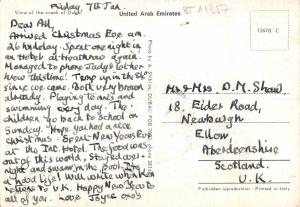 Friday, 7th Jan.
View of the creek at Dubai
United Arab Emirates
12670 C
Dear All,
Arrived Christmas Eve am.
26 hrs delay. Spent one night in
an Hotel at Heathrow again.
Managed to phone Judy & let her
know this time! Temp up in the 80s
since we came. Both very brown
already. Playing tennis and
swimming every day. The
children go back to school on
Sunday. Hope you had a nice
Christmas. Spent New Years Eve
at the Int. Hotel. The food was
out of this world. Stayed over-
night and swam in the pool. It's
a hard life! Will write when
returns to U.K. Happy New Year to
all of you. Love Joyce oxo's
Mr & Mrs D. M. Shaw,
18, Eider Road,
Newburgh
Ellon,
Aberdeenshire
Scotland.
U.K.
Forbidden reproduction - Printed in Italy